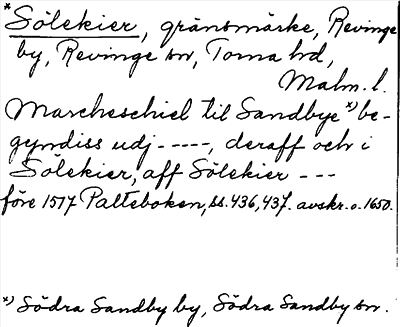 * Sölekier, gränsmärke, Revinge
by, Revinge sn, Torna hd,
Malm. l.
Marcheschiel til Sandbye x) be-
gyndiss udj -----, deraff och i
Sölekier, aff Sölekier ---
före 1517 Palteboken, ss. 436, 437. avskr. o. 1650.
x) Södra Sandby by, Södra Sandby sn.